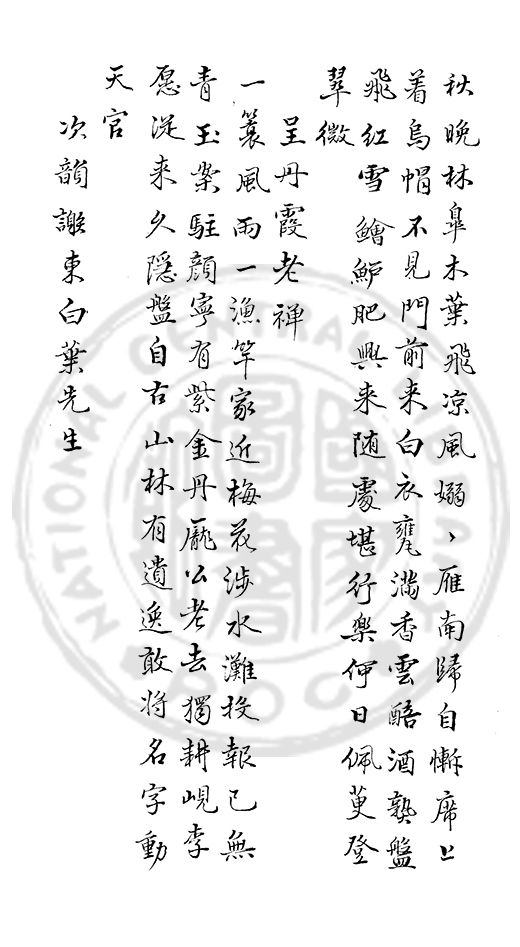 秋晚林臯木葉飛凉風嫋丶雁南歸自慚席上
着烏帽不見門前来白衣甕滿香雲醅酒熟盤
飛紅雪鱠鱸肥興来随處堪行樂何日佩萸登
翠微
呈丹霞老禅
一簑風雨一漁竿家近梅花涉水灘投報已無
青玉案駐顔寧有紫金丹龐公老去獨耕峴李
愿從来久隱盤自古山林有遺逸敢将名字動
天官
次韻謝東白葉先生
NATIONAL CENTRAL LIBRARY